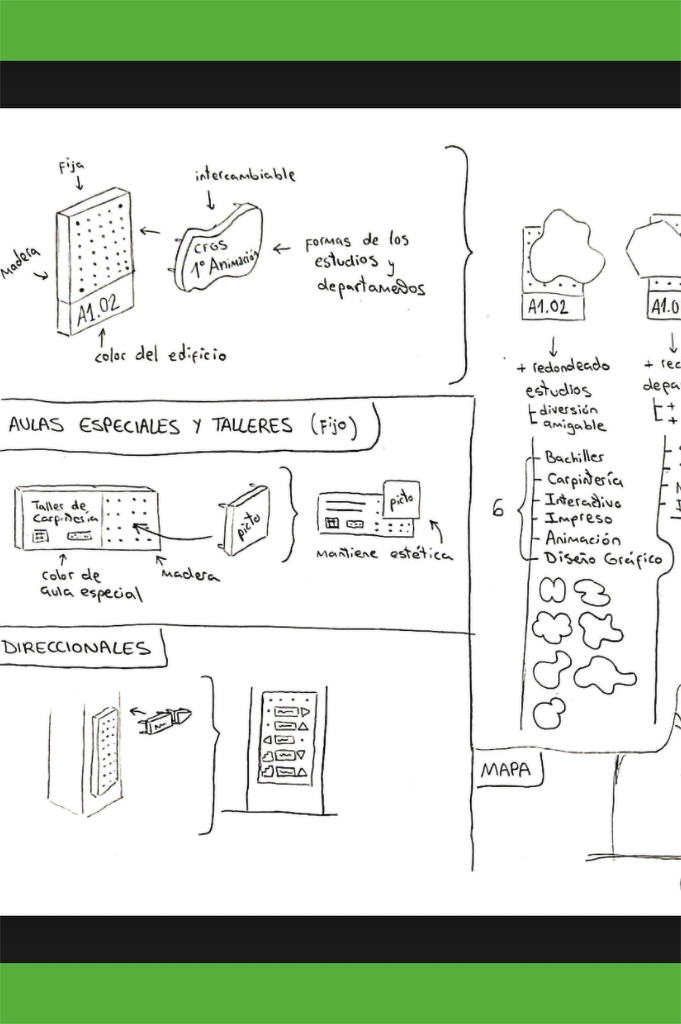 Fija
intercambiable
Madera
CFGS
1º Animación
formas de los
estudios y
departamentos
A1.02
color del edificio
A1.02
A1.0
+ redondeado
estudios
diversión
amigable
+ rec
depa
+
+
6
Bachiller
Carpintería
Interactivo
Impreso
Animación
Diseño Gráfico
AULAS ESPECIALES Y TALLERES (Fijo)
Taller de
Carpintería
picto
picto
Mantiene estética
color de
aula especial
Madera
DIRECCIONALES
MAPA